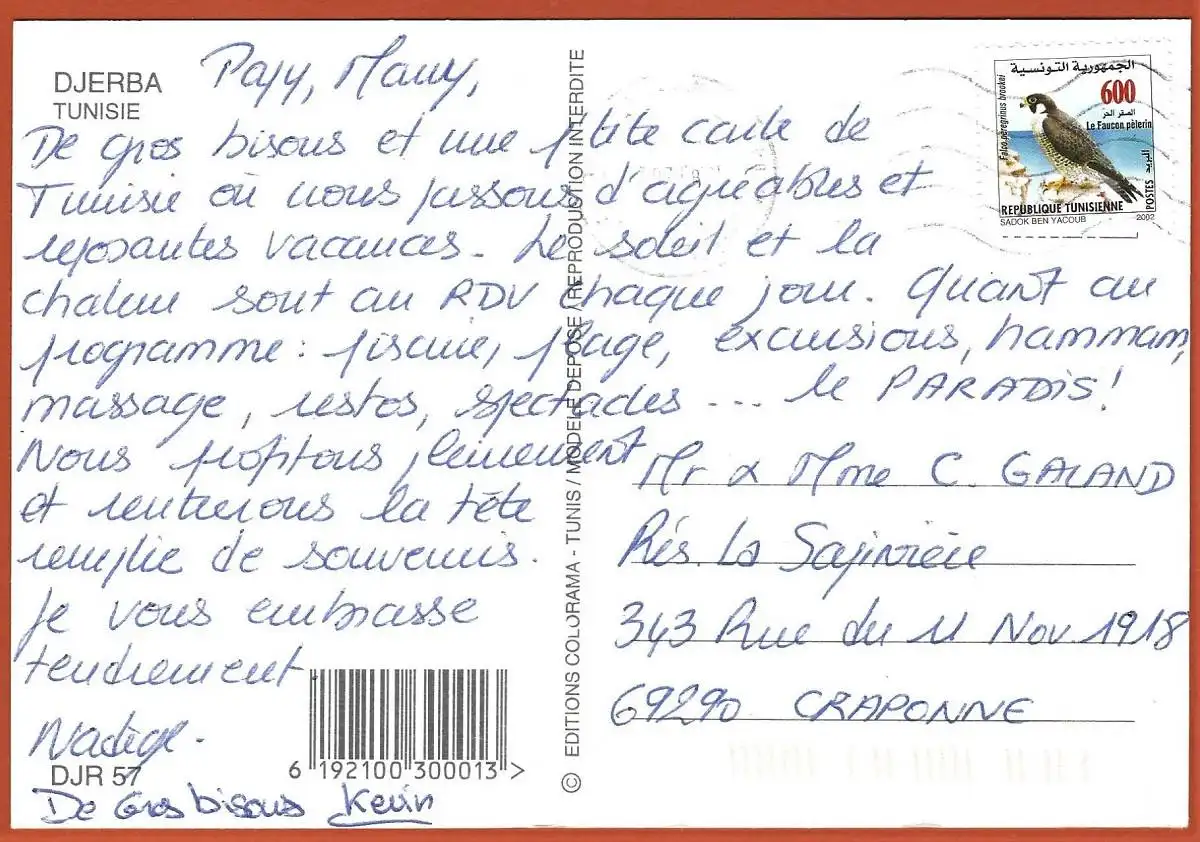 DJERBA
TUNISIE
Papy, Mamy,
De gros bisous et une ptite carte de
Tunisie où nous passons d'agréables et
reposantes vacances. Le soleil et la
chaleur sont au RDV chaque jour. Quant au
programme : piscine, plage, excursions, hammam,
massage, restos, spectacles ... le PARADIS !
Nous profitons pleinement
et rentrerons la tête
remplie de souvenirs.
Je vous embrasse
tendrement
Nadège.
DJR 57
De Gros bisous Kevin
6 192100 300013 >
© EDITIONS COLORAMA - TUNIS / MODELE DEPOSE / REPRODUCTION INTERDITE
الجمهورية التونسية
600
الصقر الحر
Le Faucon pèlerin
Falco peregrinus brookei
البريد
POSTES
REPUBLIQUE TUNISIENNE
SADOK BEN YACOUB 2002
Mr & Mme C. GALAND
Rés. La Sapinière
343 Rue du 11 Nov. 1918
69290 CRAPONNE